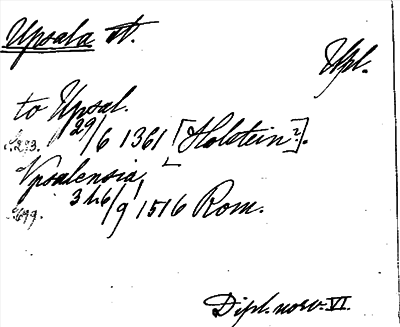 Upsala st.
Upl.
to Upsal.
s. 293. 29/6 1361 [Holstein?].
Vpsalensia,
s. 699. 3 & 6/9 1516 Rom.
Dipl. norv. VI.